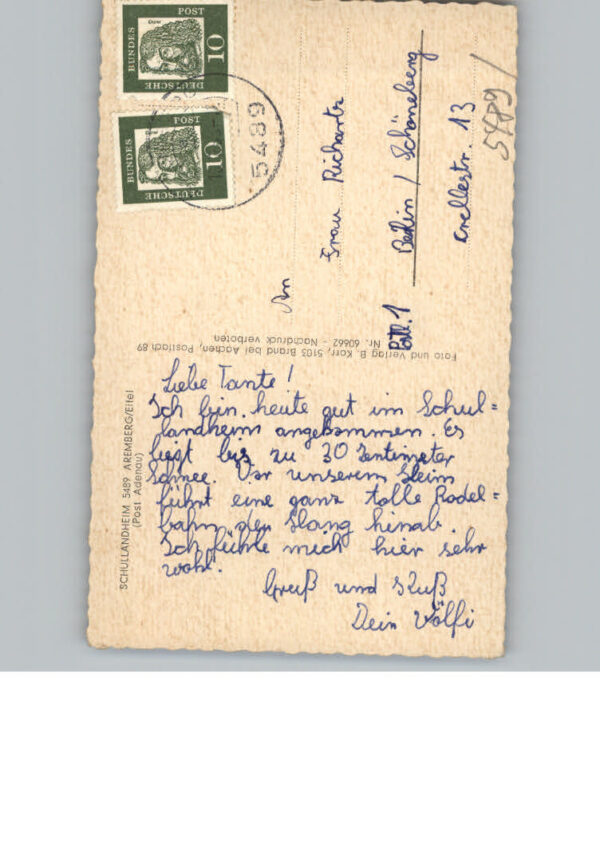 Liebe Tante!
Ich bin heute gut im Schul=
landheim angekommen. Es
liegt bis zu 30 Zentimeter
Schnee. Vor unserem Heim
führt eine ganz tolle Rodel=
bahn den Hang hinab.
Ich fühle mich hier sehr
wohl.
Gruß und Kuß
Dein Wölfi
An
Frau Richartz
Berlin / Schöneberg
Crellestr. 13
5489
DEUTSCHE
BUNDES
POST
10
DEUTSCHE
BUNDES
POST
10
5489
SCHULLANDHEIM 5489 AREMBERG/Eifel
(Post Adenau)
Foto und Verlag B. Korr, 5103 Brand bei Aachen, Postfach 89
Nr. 60662 - Nachdruck verboten